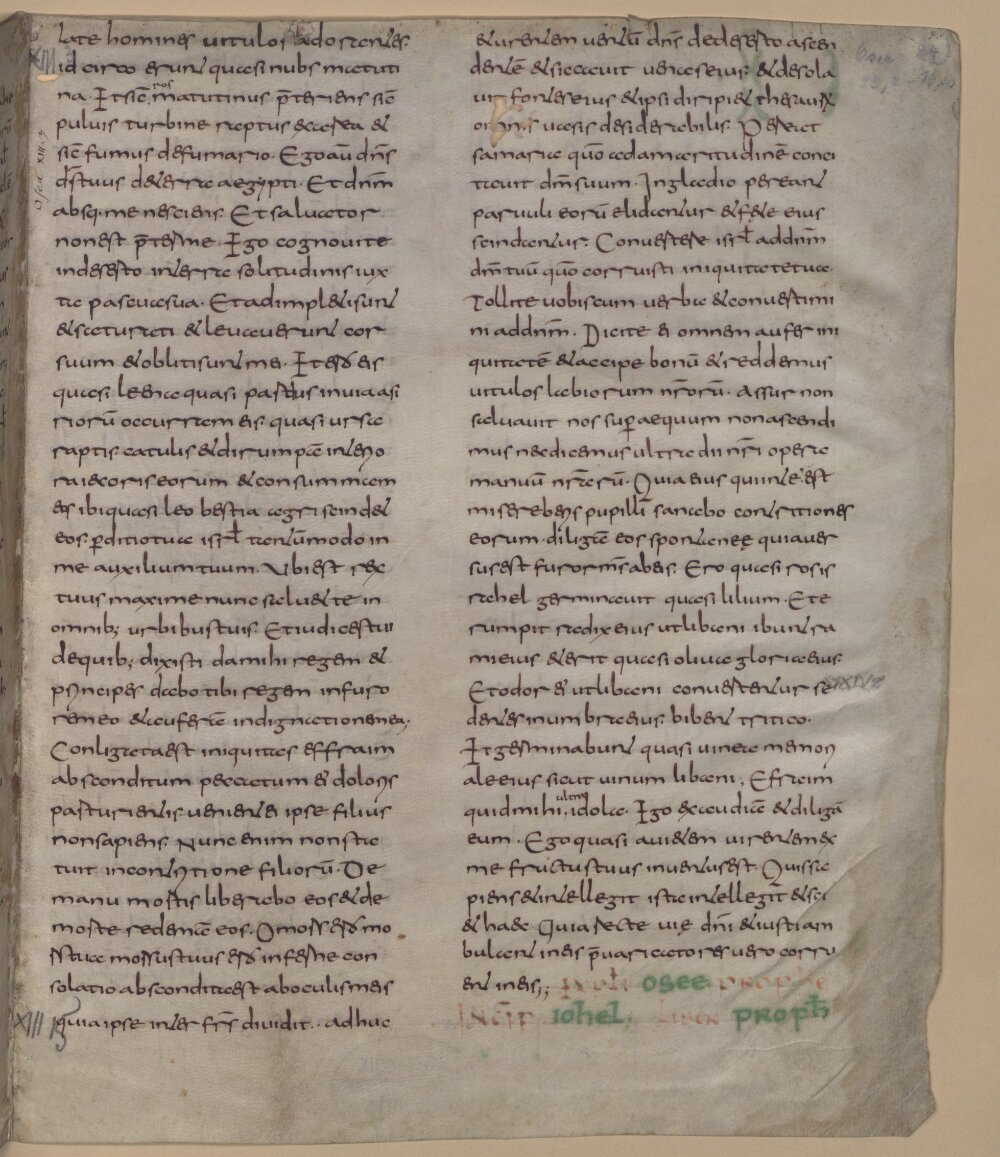 late homines uitulos adorentes
XIII
id circo erunt quasi nubs matuti
na. Et sic̄ ros matutinus p̄teriens sic̄
puluis turbine raptus ex area et
sic̄ fumus de fumario. Ego aū dn̄s
d̄s tuus de terra aegypti. Et dn̄m
absq; me nescieris. Et saluator
non est p̄ter me. Ego cognoui te
in deserto in terra solitudinis iux
ta pascua sua. Et adimpleti sunt
et saturati et leuauerunt cor
suum et obliti sunt me. Et ero eis
quasi leaena quasi pardus in uia asi
riorū occurram eis. quasi ursa
raptis catulis et dirumpā interio
ra iecoris eorum et consummam
eos ibi quasi leo bestia agri scindet
eos. p̄ditio tua isrł tantūmodo in
me auxilium tuum. Vbi est rex
tuus maxime nunc saluet te in
omnib; urbibus tuis. Et iudices tui
de quib; dixisti da mihi regem et
principes dabo tibi regem in furo
re meo et auferā in dignatione mea;
Conligata est iniquitas effraim
absconditum peccatum ei dolores
parturientis uenient ei ipse filius
non sapiens. Nunc enim non sta
bit in contritione filiorū. De
manu mortis liberabo eos et de
morte redemā eos. O mors ero mo
rs tua morsus tuus ero inferne con
solatio abscondita est ab oculis meis
XIII quia ipse inter frs̄ diuidit. adduc
et urentem uentū dn̄s de deserto ascen
dentē et siccauit uenas eius. et desola
uit fontes eius et ipsi diripiet thesaurū
omnis uasis desiderabilis. Pereat
samaria quō ad amaritudinē conci
tauit dm̄ suum. In gladio pereant
paruuli eorū elidantur et fete eius
scindantur. Conuertere isrł ad dnm̄
dm̄ tuū quō corruisti iniquitate tua.
Tollite uobiscum uerba et conuertimi
ni ad dnm̄. Dicite ei omnem aufer ini
quitatē et accipe bonū et reddemus
uitulos labiorum nr̄orū. Assur non
saluauit nos sup̄ aequum non ascendi
mus nec dicemus ultra dii nr̄i opera
manuū nr̄arū. Quia eius qui in te est
misereberis pupilli sanabo contritiones
eorum. diligā eos spontaneę quia auer
sus est furor ms̄ ab eis. Ero quasi ros is
rahel germinauit quasi lilium. Et e
rumpit radix eius ut libani ibunt ra
mi eius et erit quasi oliua gloria eius.
Et odor ei ut libani conuertentur se
dentes in umbra eius. bibent tritico.
Et germinabunt quasi uinea memori
ale eius sicut uinum libani; Efraim
quid mihi ultra idola. Ego exaudiā et diligā
eum. Ego quasi auietem uirentem ex
me fructus tuus inuentus est. Quis sa
piens et intellegit ista intellegit et sci
et haec. Quia recte uie dn̄i et iusti am
bulant in eis p̄uaricatores uero corru
ent in eis;; Expł osee prophe
Incip iohel; Liber proph̄